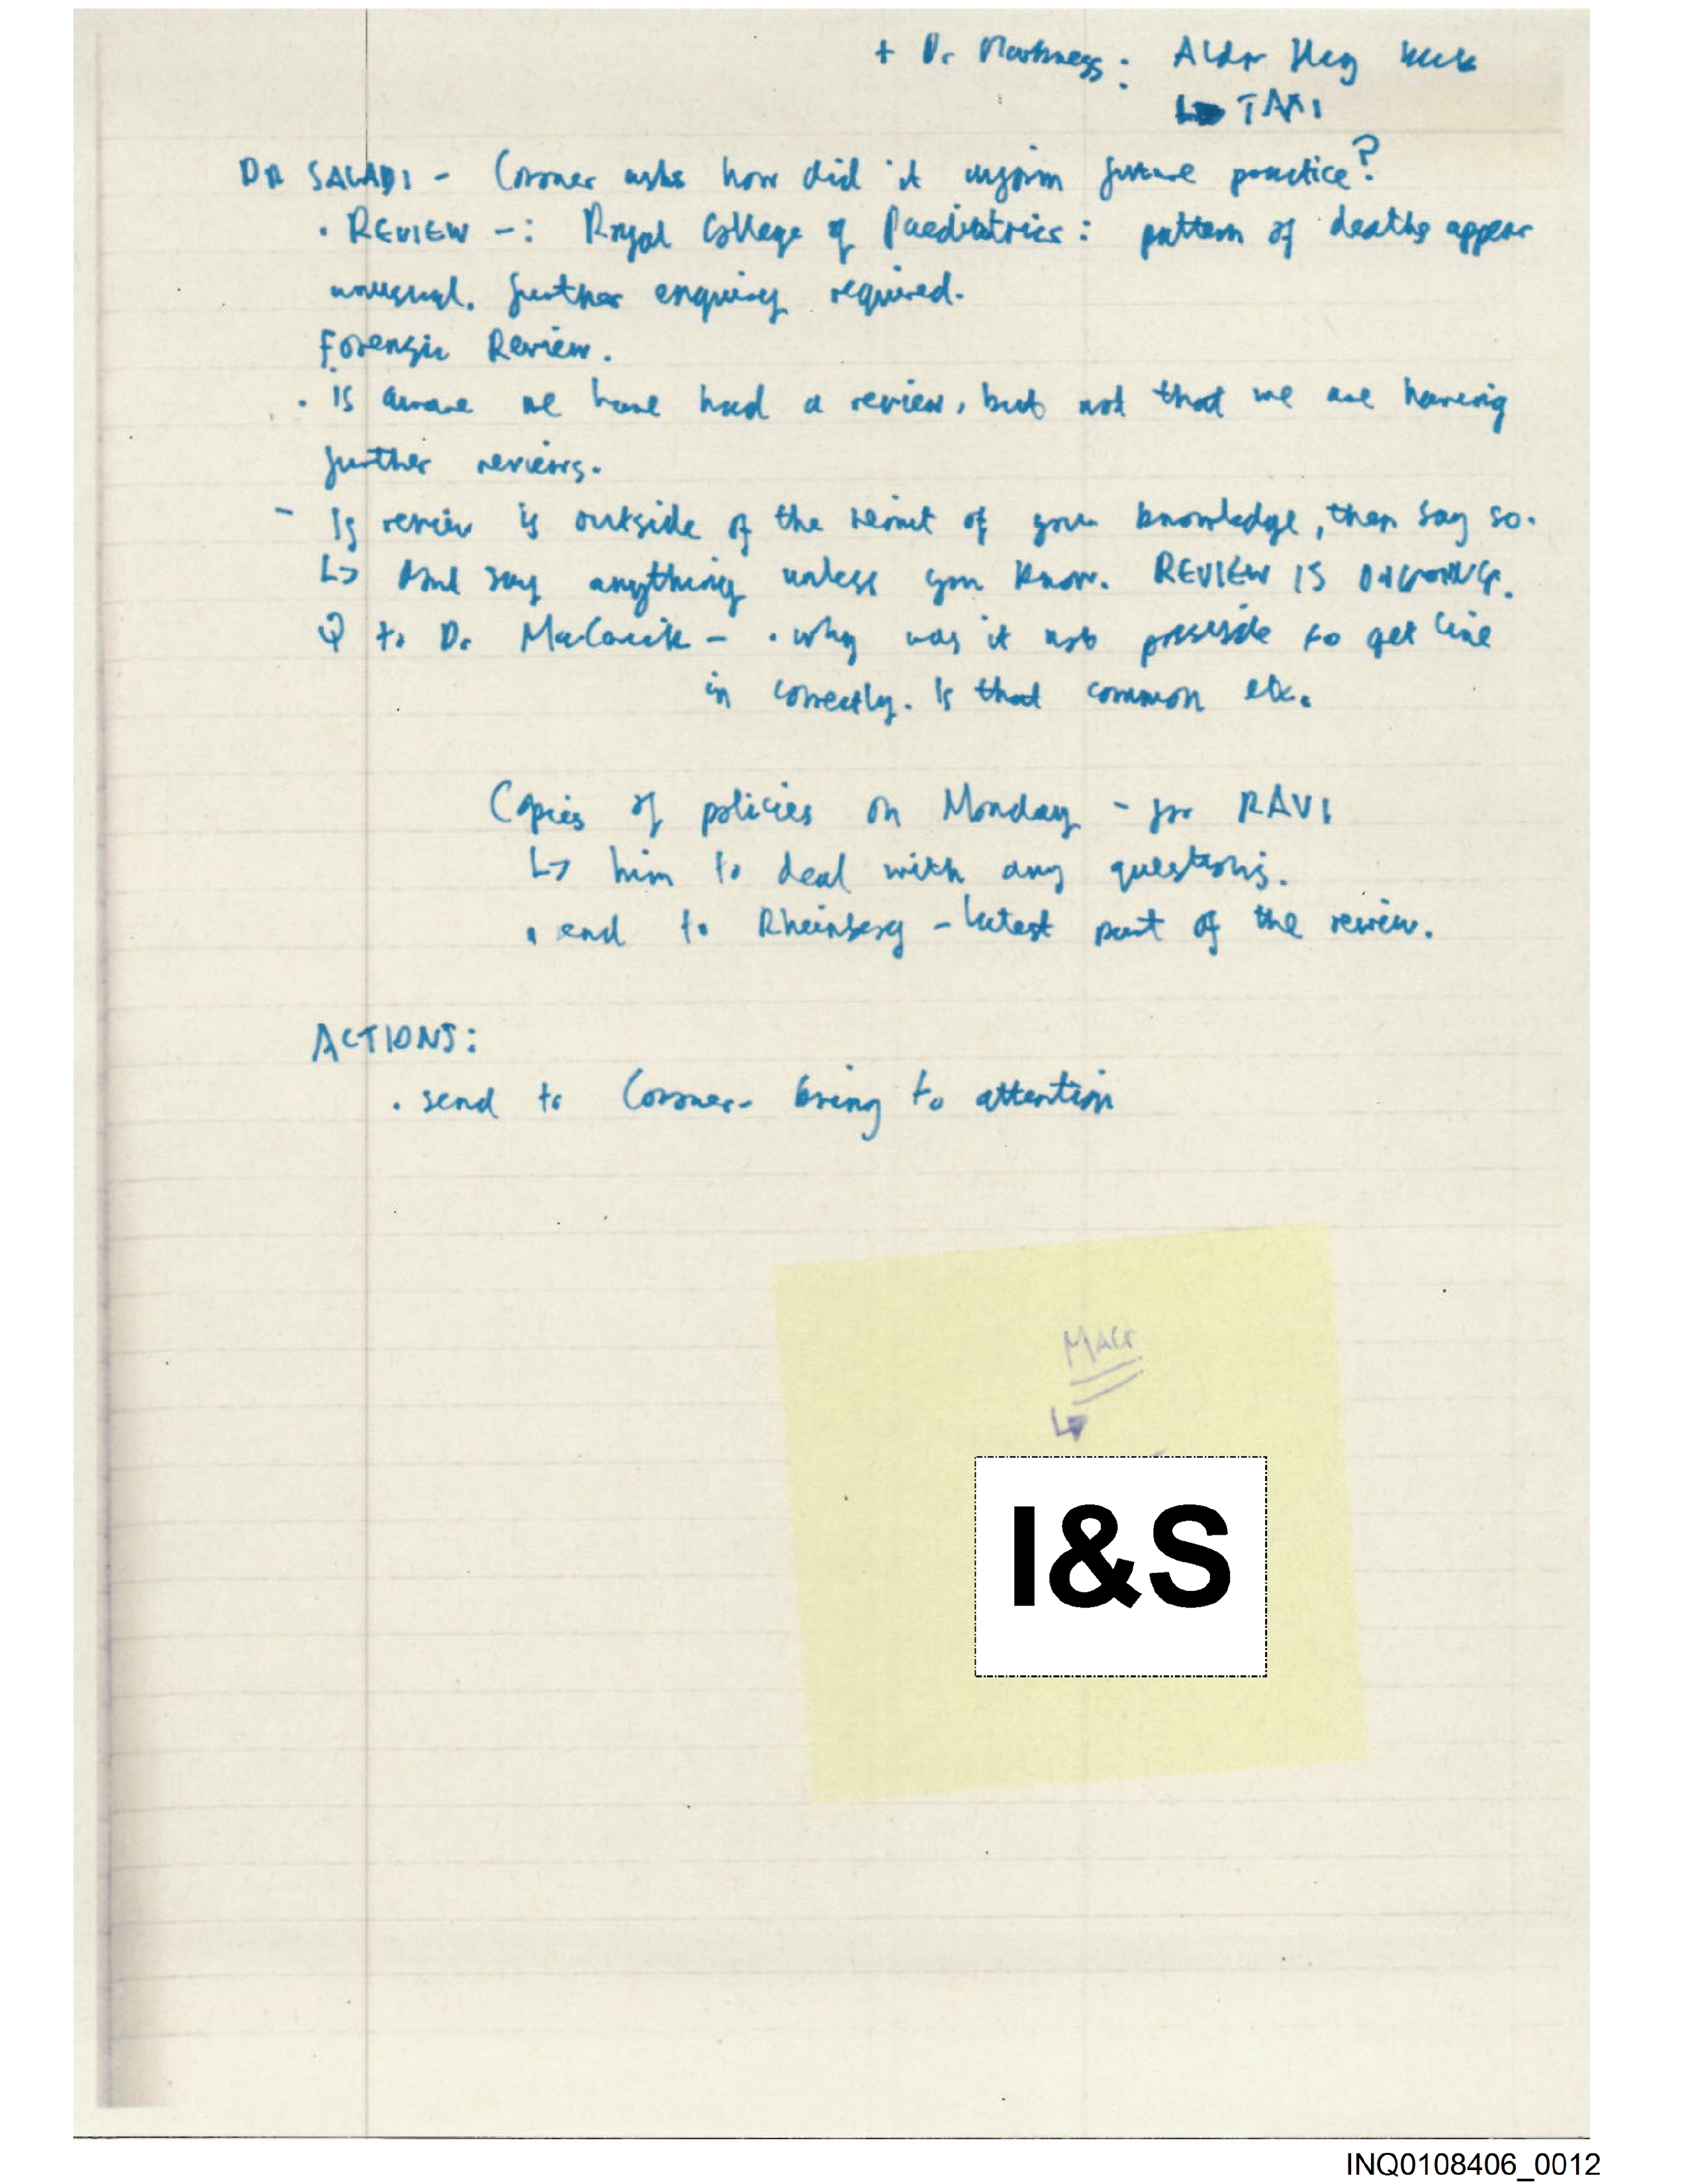 + Dr Harkness: Alder Hey
↳ TAXI
DR SALADI - Coroner asks how did it inform future practice?
• REVIEW -: Royal College of Paediatrics: pattern of deaths appear
unusual. further enquiry required.
Forensic Review.
• Is aware we have had a review, but not that we are having
further reviews.
- If review is outside of the remit of your knowledge, then say so.
↳ Dont say anything unless you know. REVIEW IS ONGOING.
Q to Dr - • why was it not possible to get line
in correctly. Is that common etc.
Copies of policies on Monday - for RAVI
↳ him to deal with any questions.
• end to Rheinberg - latest part of the review.
ACTIONS:
• send to Coroner - bring to attention
↳
I&S
INQ0108406_0012